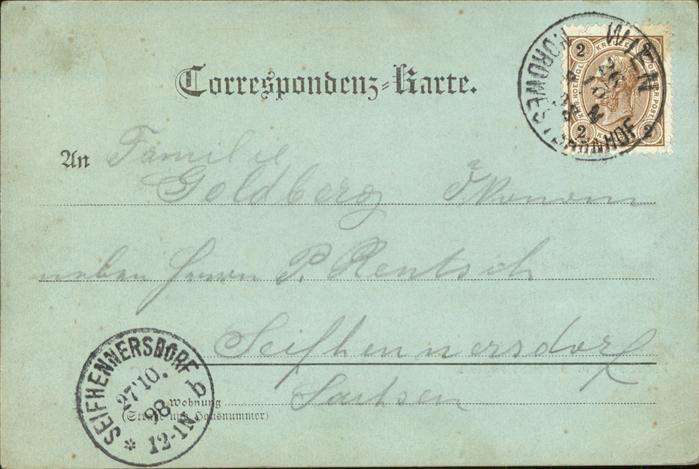 Correspondenz-Karte.
WIEN
NORDWESTBAHNHOF
2 2
2 2
An Familie
Goldberg Ökonom
neben Herrn P. Rentsch
Seifhennersdorf
Sachsen
Wohnung
(Strasse und Hausnummer)
SEIFHENNERSDORF b
27 10.
98
12-1N
*